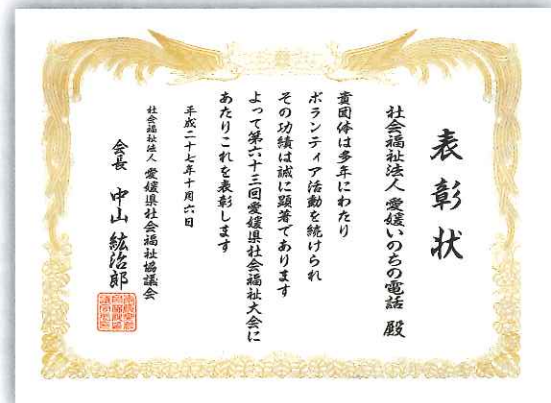 表彰状
社会福祉法人 愛媛いのちの電話 殿
貴団体は多年にわたり
ボランティア活動を続けられ
その功績は誠に顕著であります
よって第六十三回愛媛県社会福祉大会に
あたりこれを表彰します
平成二十七年十月六日
社会福祉法人 愛媛県社会福祉協議会
会長 中山紘治郎